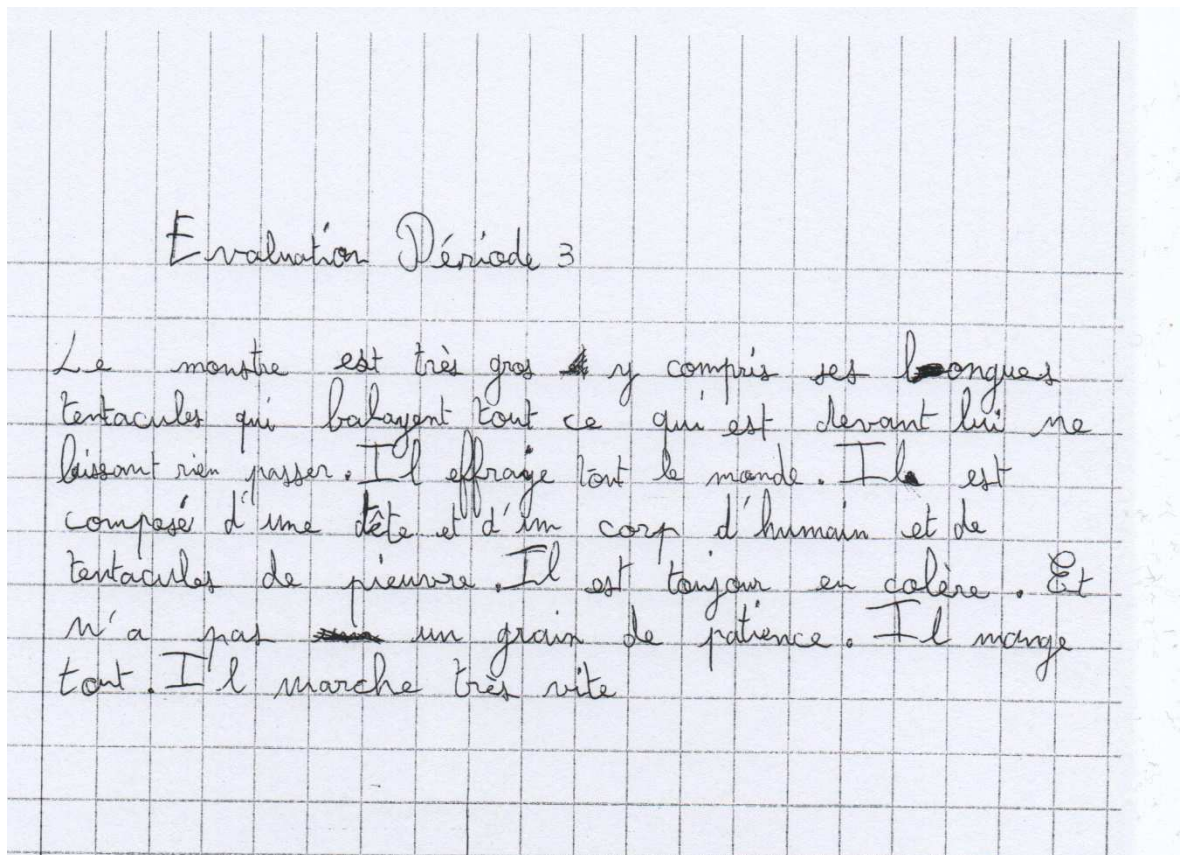 Evaluation Période 3
Le monstre est très gros y compris ses longues
tentacules qui balayent tout ce qui est devant lui ne
laissant rien passer. Il effraye tout le monde. Il est
composé d'une tête et d'un corp d'humain et de
tentacules de pieuvre. Il est toujour en colère. Et
n'a pas un grain de patience. Il mange
tout. Il marche très vite